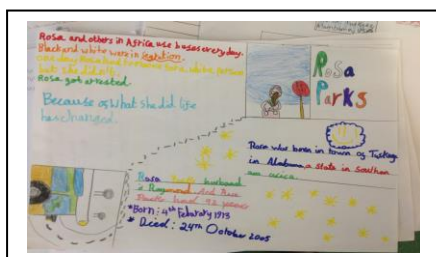 Rosa and others in Africa use buses every day.
Black and white were in
one day Rosa had to
but she didn't.
Rosa got arrested
Because of what she did life
has changed.
Rosa
Parks
Rosa was born in town of
in Alabama, a state in southern
Rosa husband
is Raymond. And
lived 92 years
*Born: 4th February 1913
* Died: 24th October 2005